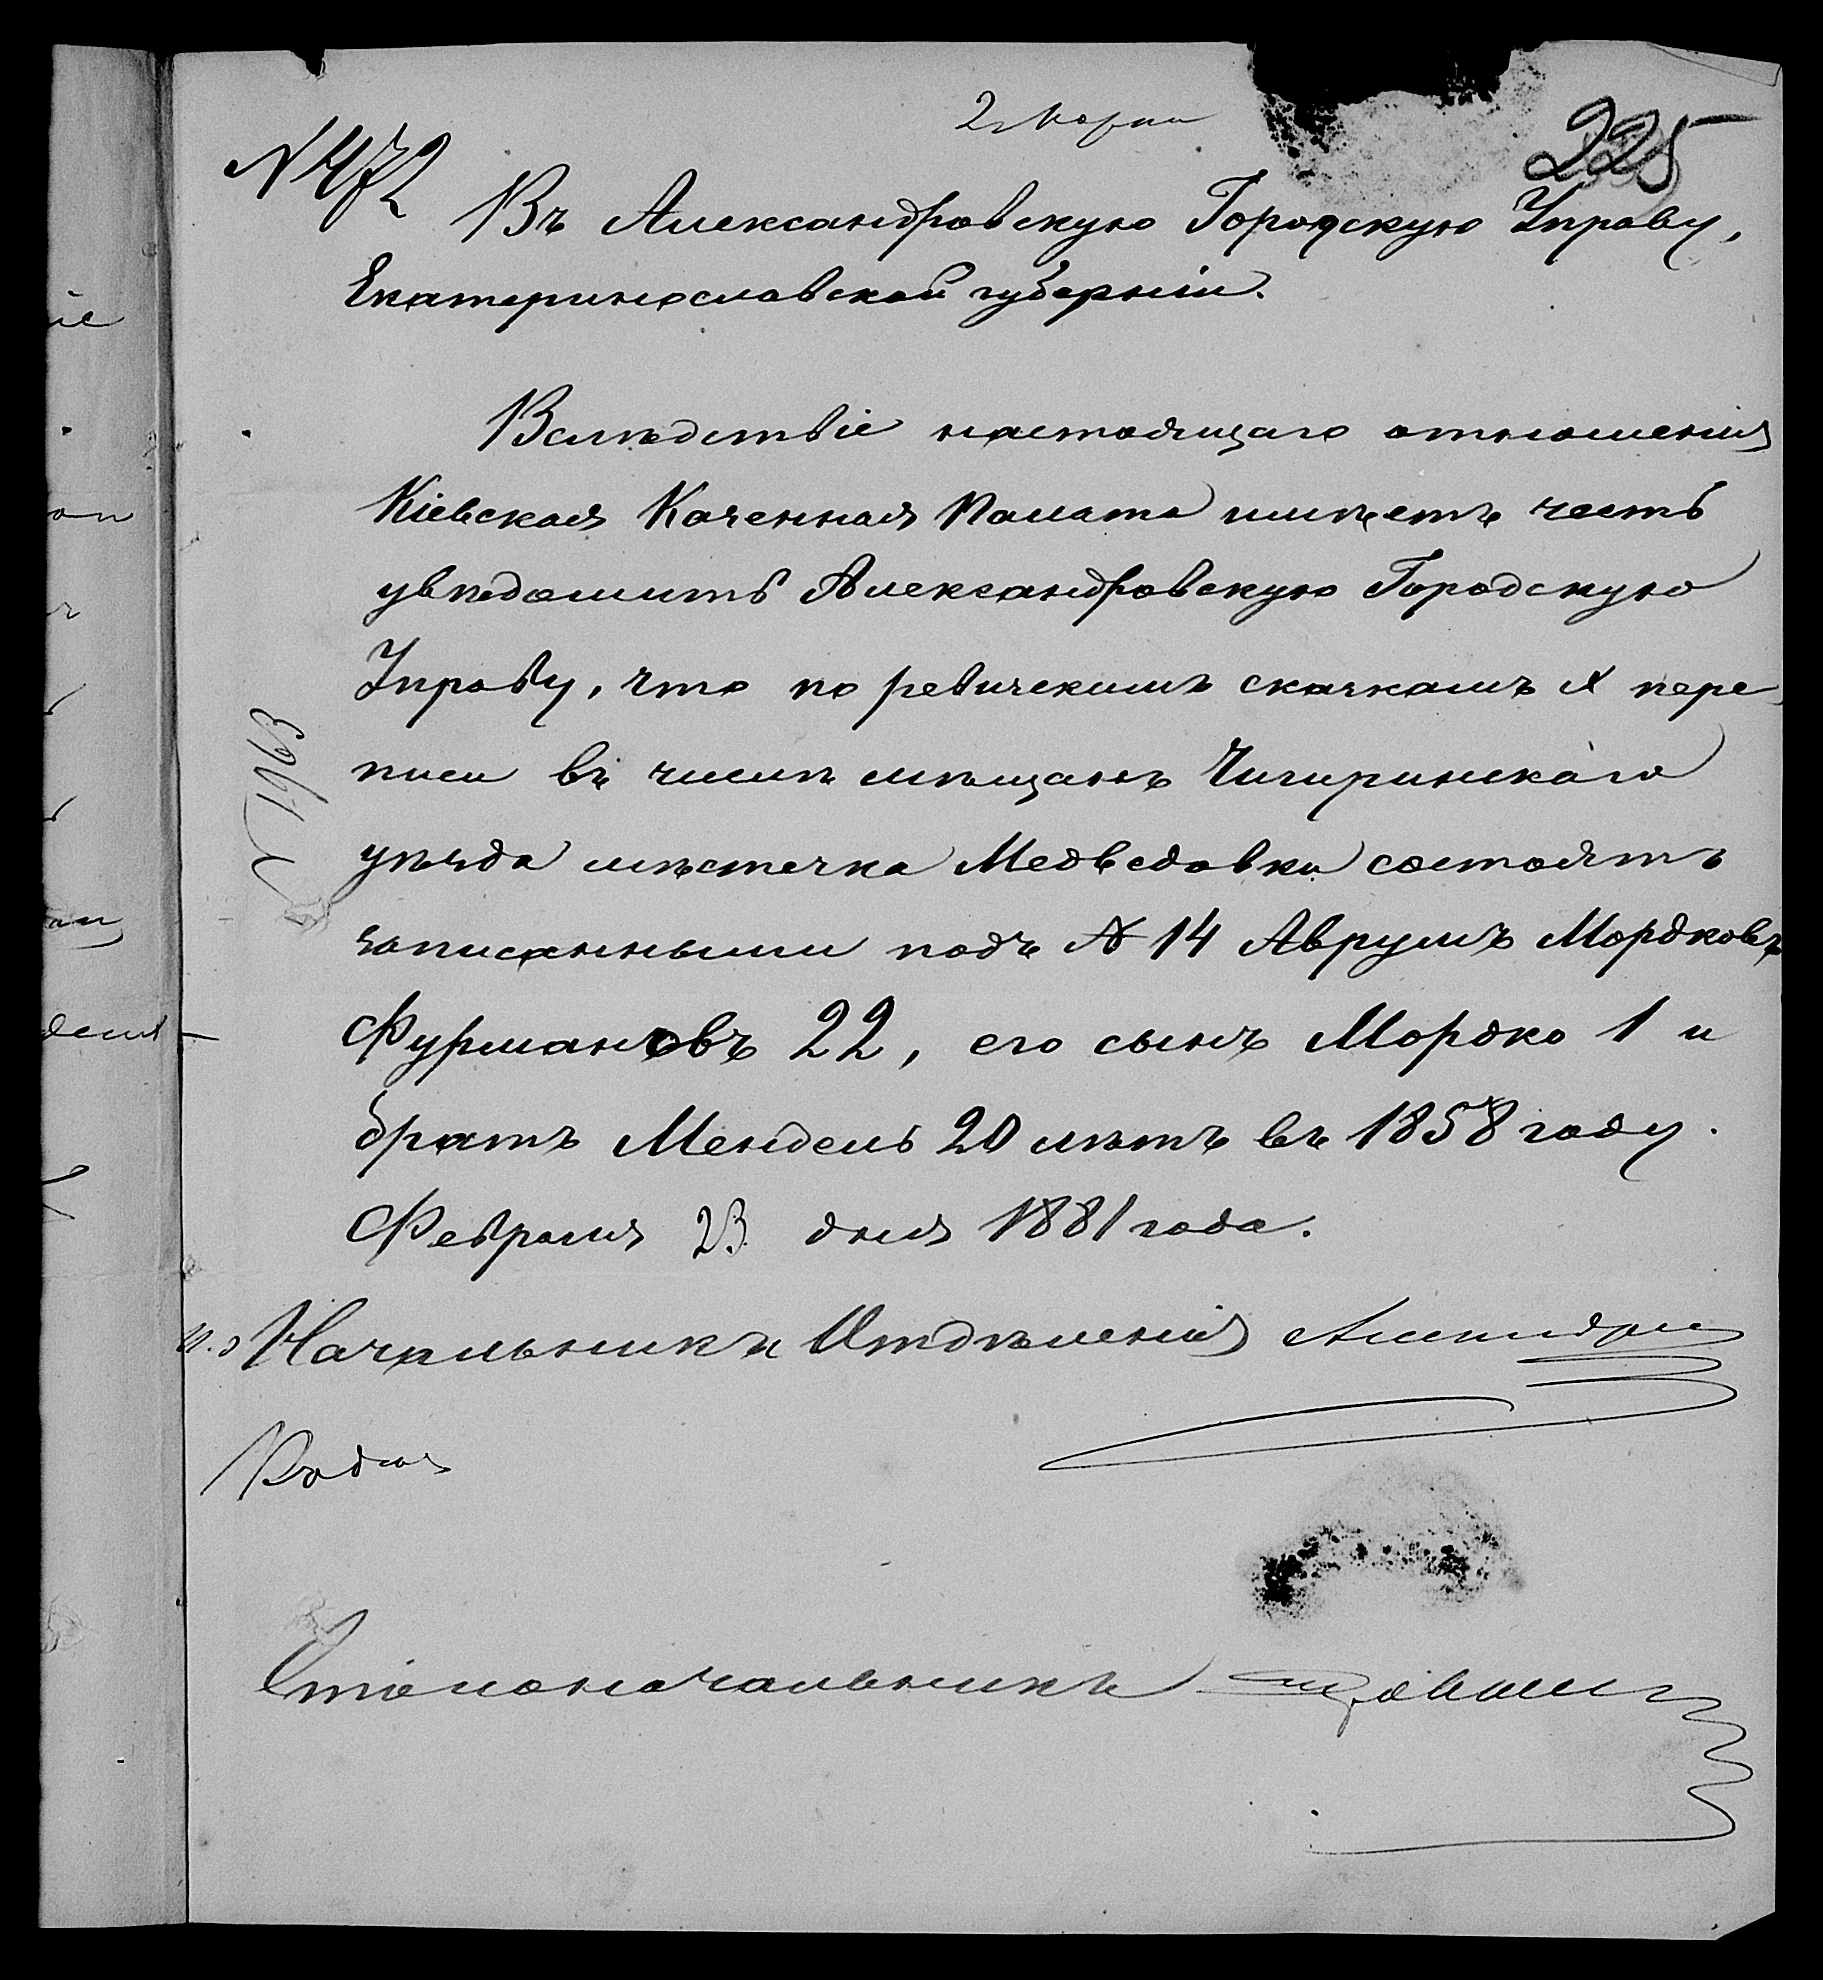 2 Марта
225
N 472
Въ Александровскую Городскую Управу,
Екатеринославской губерніи.
Вслѣдствіе настоящаго отношенія
Кіевская Казенная Палата имѣетъ честь
увѣдомить Александровскую Городскую
Управу, что по ревизскимъ сказкамъ X пере
писи въ числѣ мѣщанъ Чигиринскаго
уѣзда мѣстечка Медведовки состоятъ
записанными подъ № 14 Аврумъ Мордковъ
Фурмановъ 22, его сынъ Мордко 1 и
братъ Мендель 20 лѣтъ въ 1858 году.
Февраля 23 дня 1881 года.
И.д Начальникъ Отдѣленія
Столоначальникъ